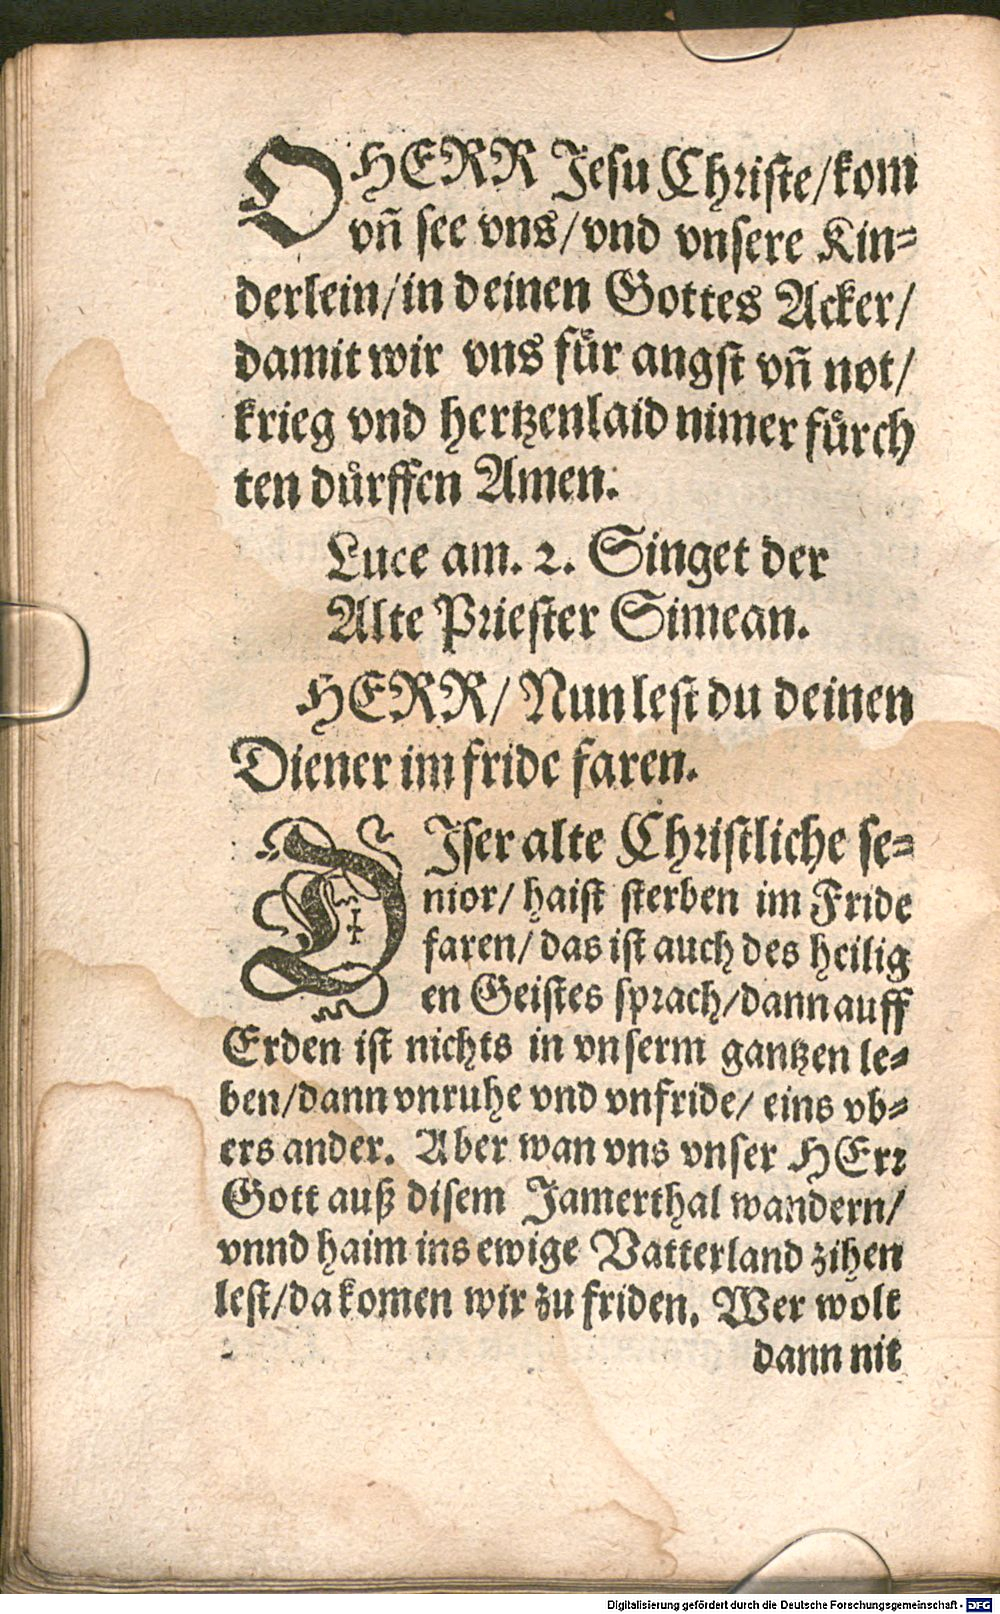 O HERR Jesu Christe/kom
vñ see vns/vnd vnsere Kin⸗
derlein/in deinen Gottes Acker/
damit wir vns fuͤr angst vñ not/
krieg vnd hertzenlaid nimer fuͤrch
ten duͤrffen Amen.
Luce am. 2. Singet der
Alte Priester Simean.
HERR/ Nun lest du deinen
Diener im fride faren.
DIser alte Christliche se⸗
nior/ haist sterben im Fride
faren/ das ist auch des heilig
en Geistes sprach/dann auff
Erden ist nichts in vnserm gantzen le⸗
ben/dann vnruhe vnd vnfride/ eins vb⸗
ers ander. Aber wan vns vnser HErr
Gott auß disem Jamerthal wandern/
vnnd haim ins ewige Vatterland zihen
lest/da komen wir zu friden. Wer wolt
dann nit
Digitalisierung gefördert durch die Deutsche Forschungsgemeinschaft - DFG